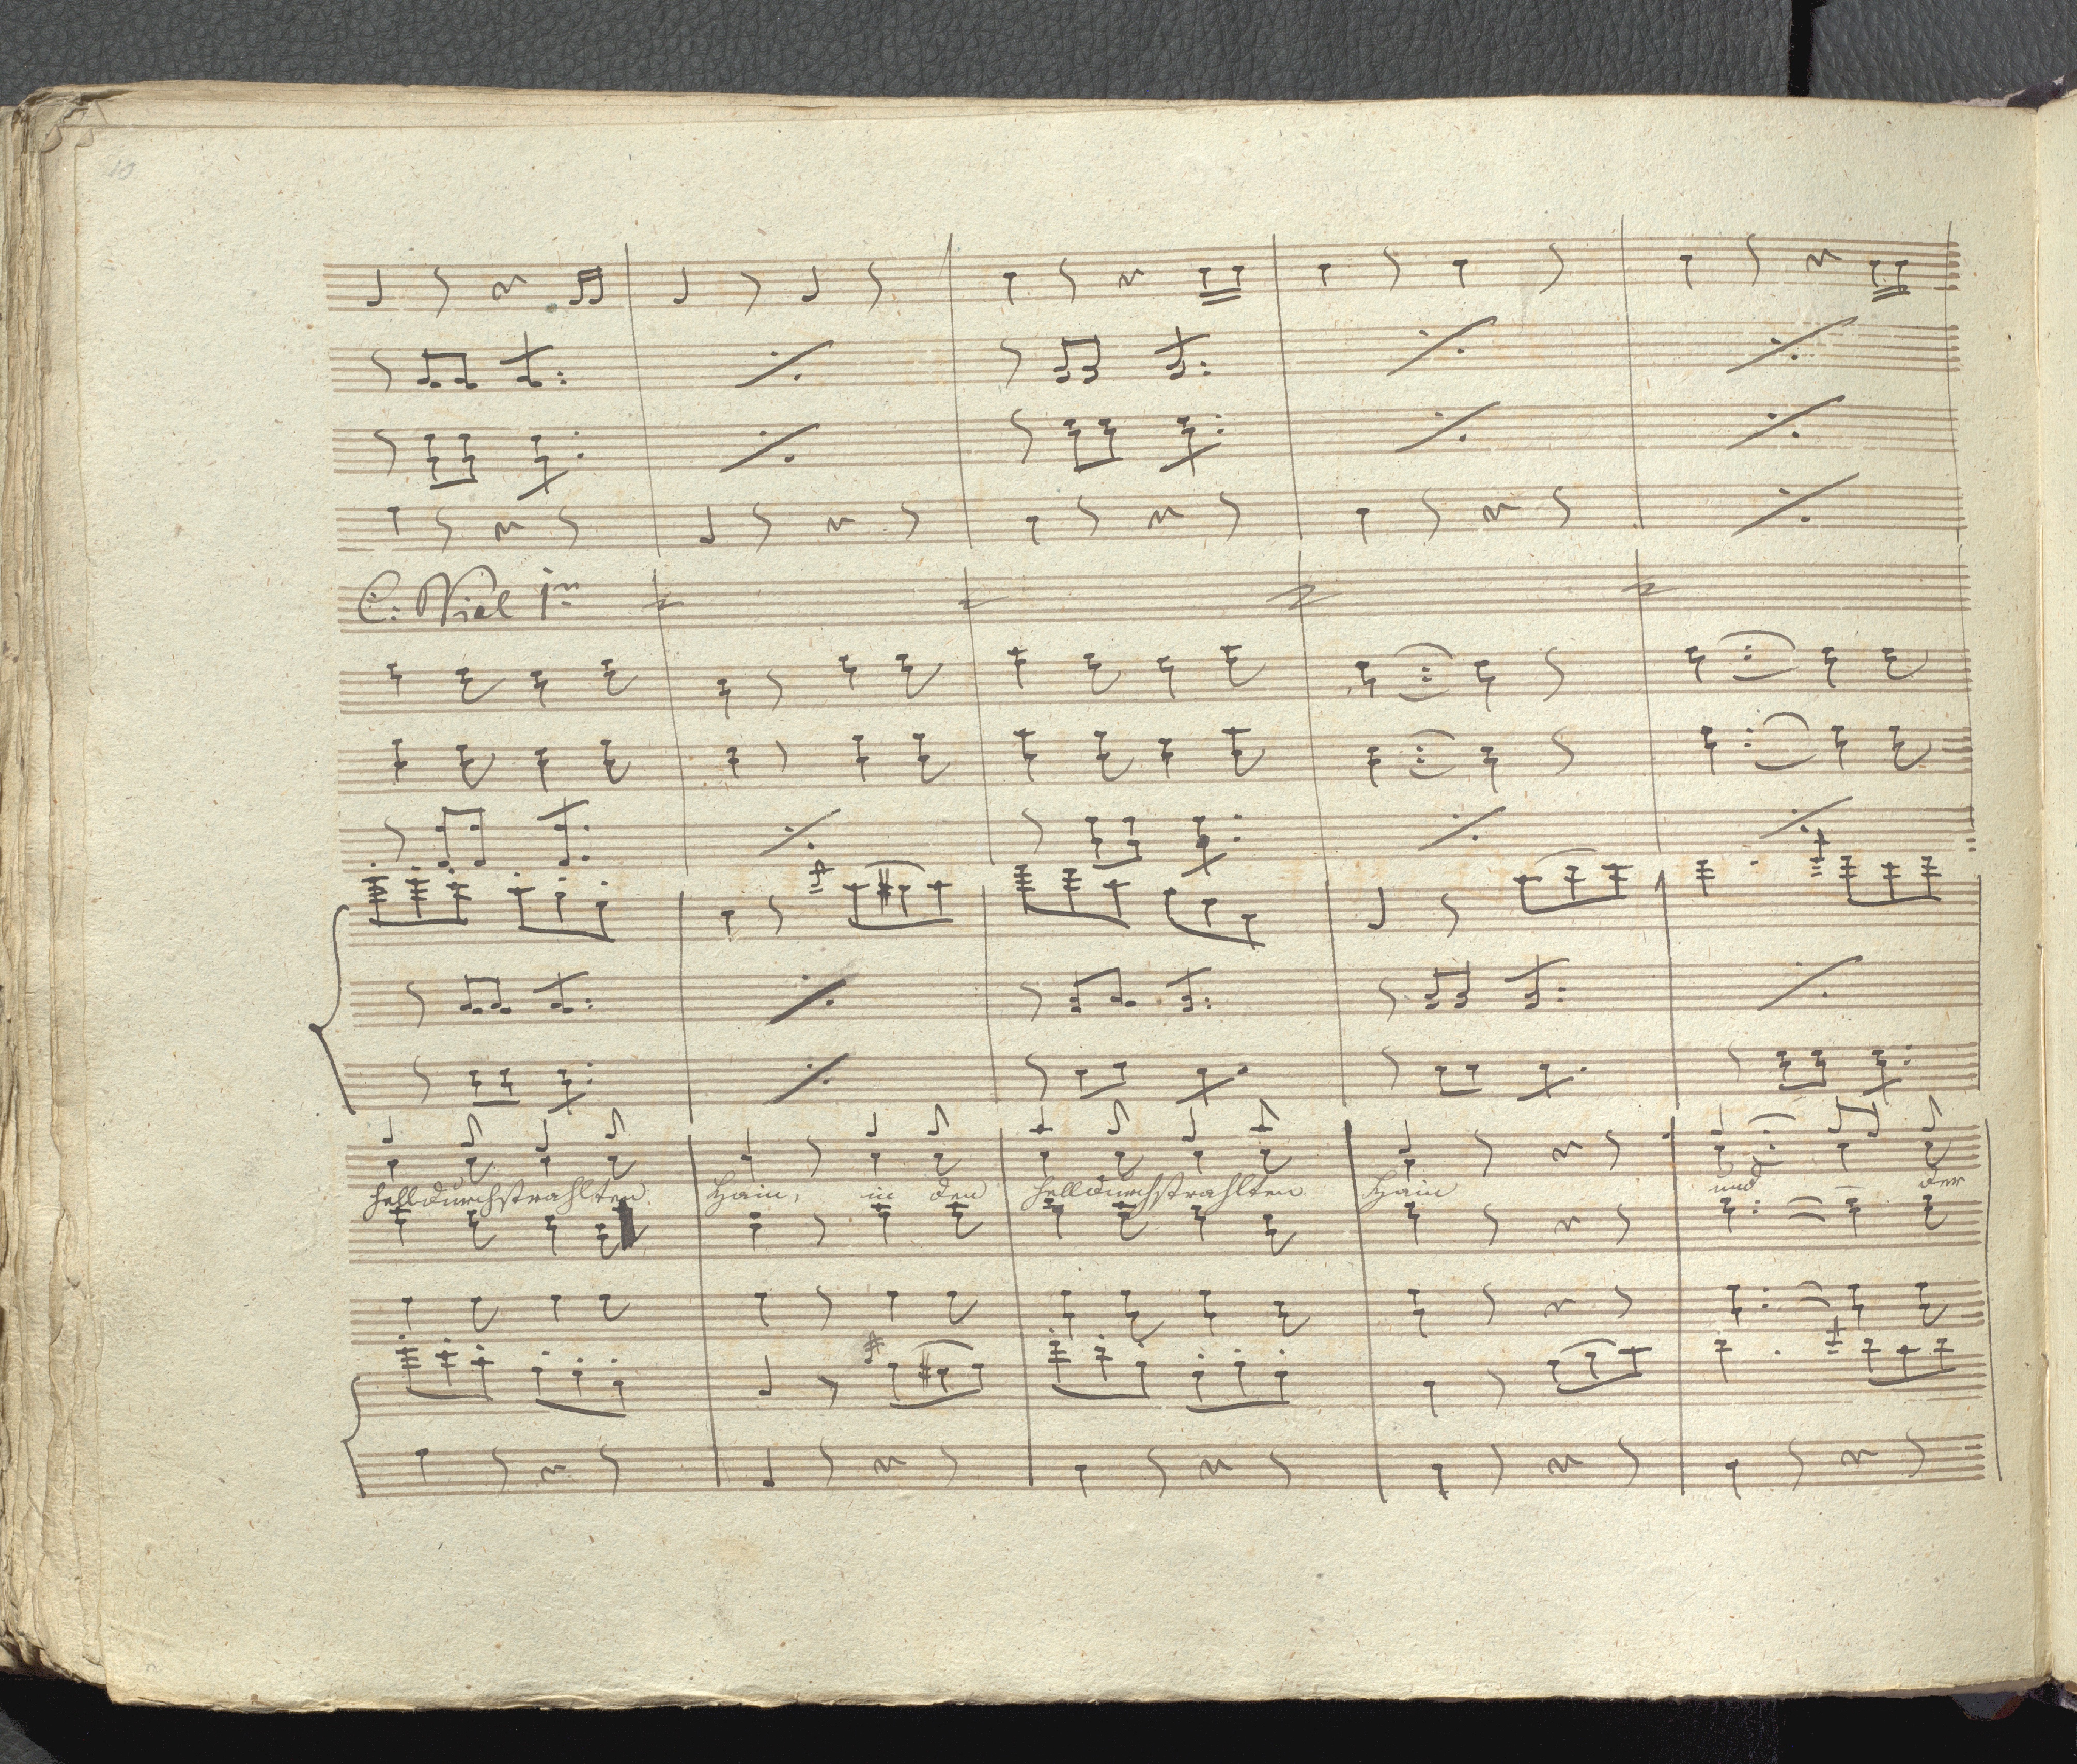 10
C. Viol 1mo
helldurchstrahlten Hain, in den helldurchstrahlten Hain und der